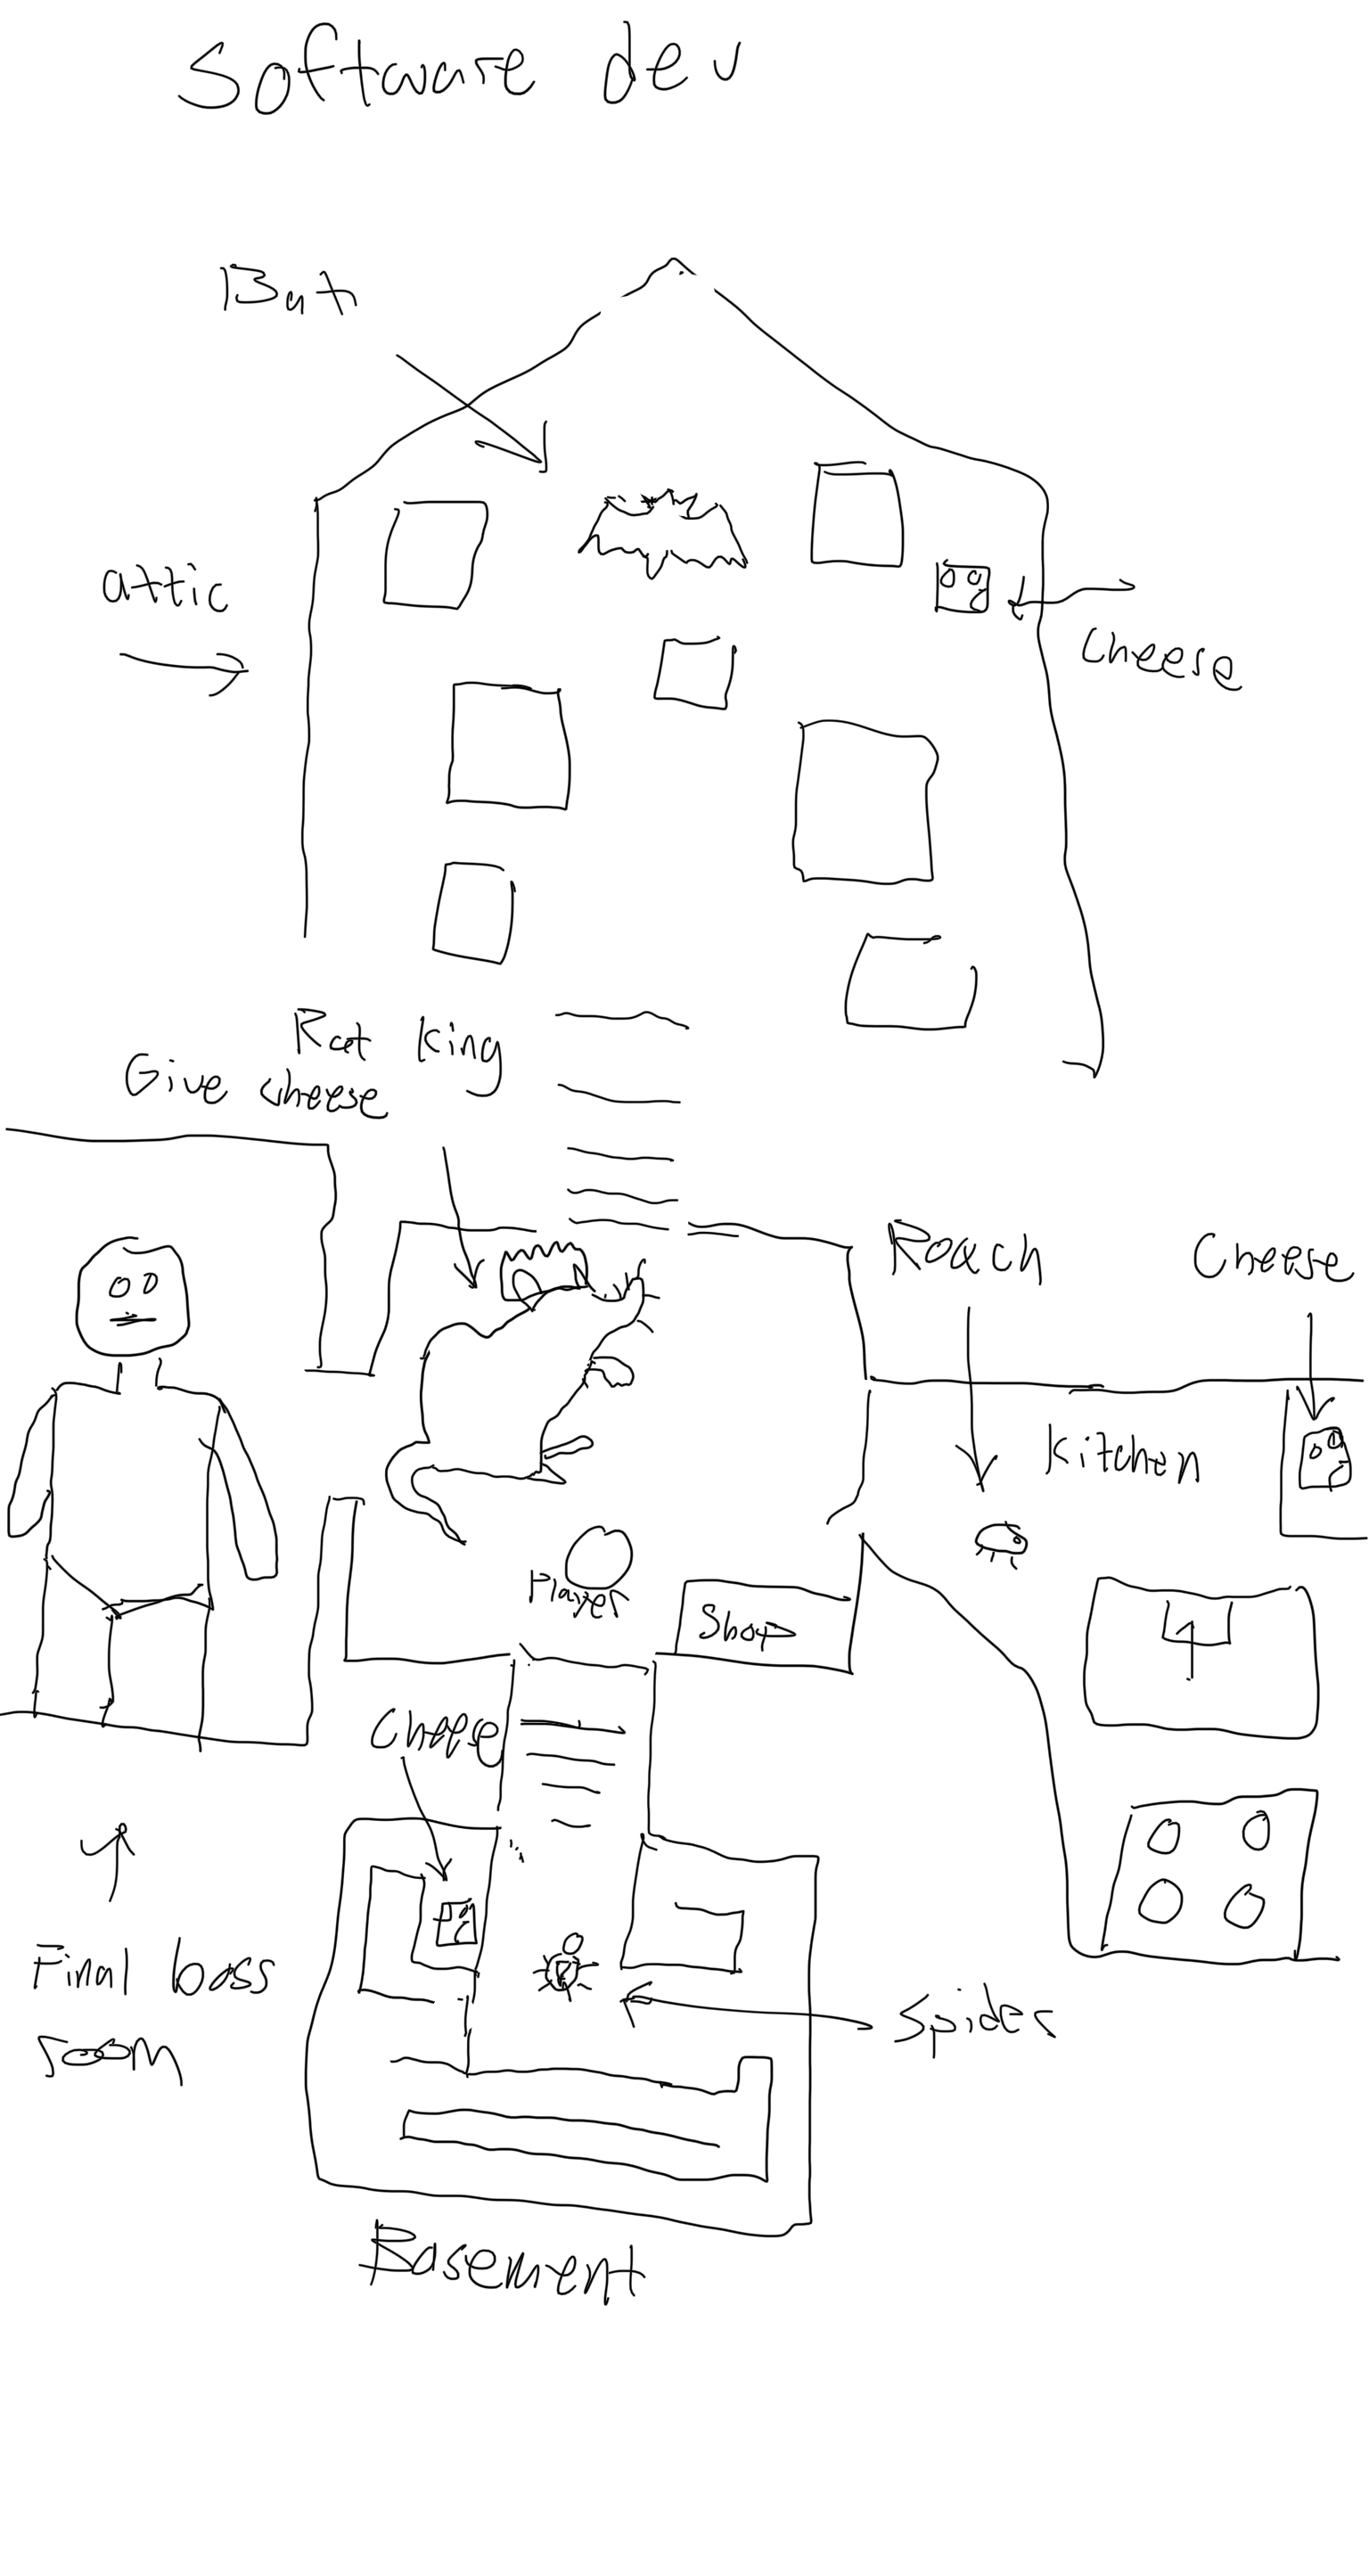 Software dev
Bat
attic
Cheese
Rat King
Give cheese
Roach
Cheese
Kitchen
Player
Shop
Cheese
Final boss
room
Spider
Basement